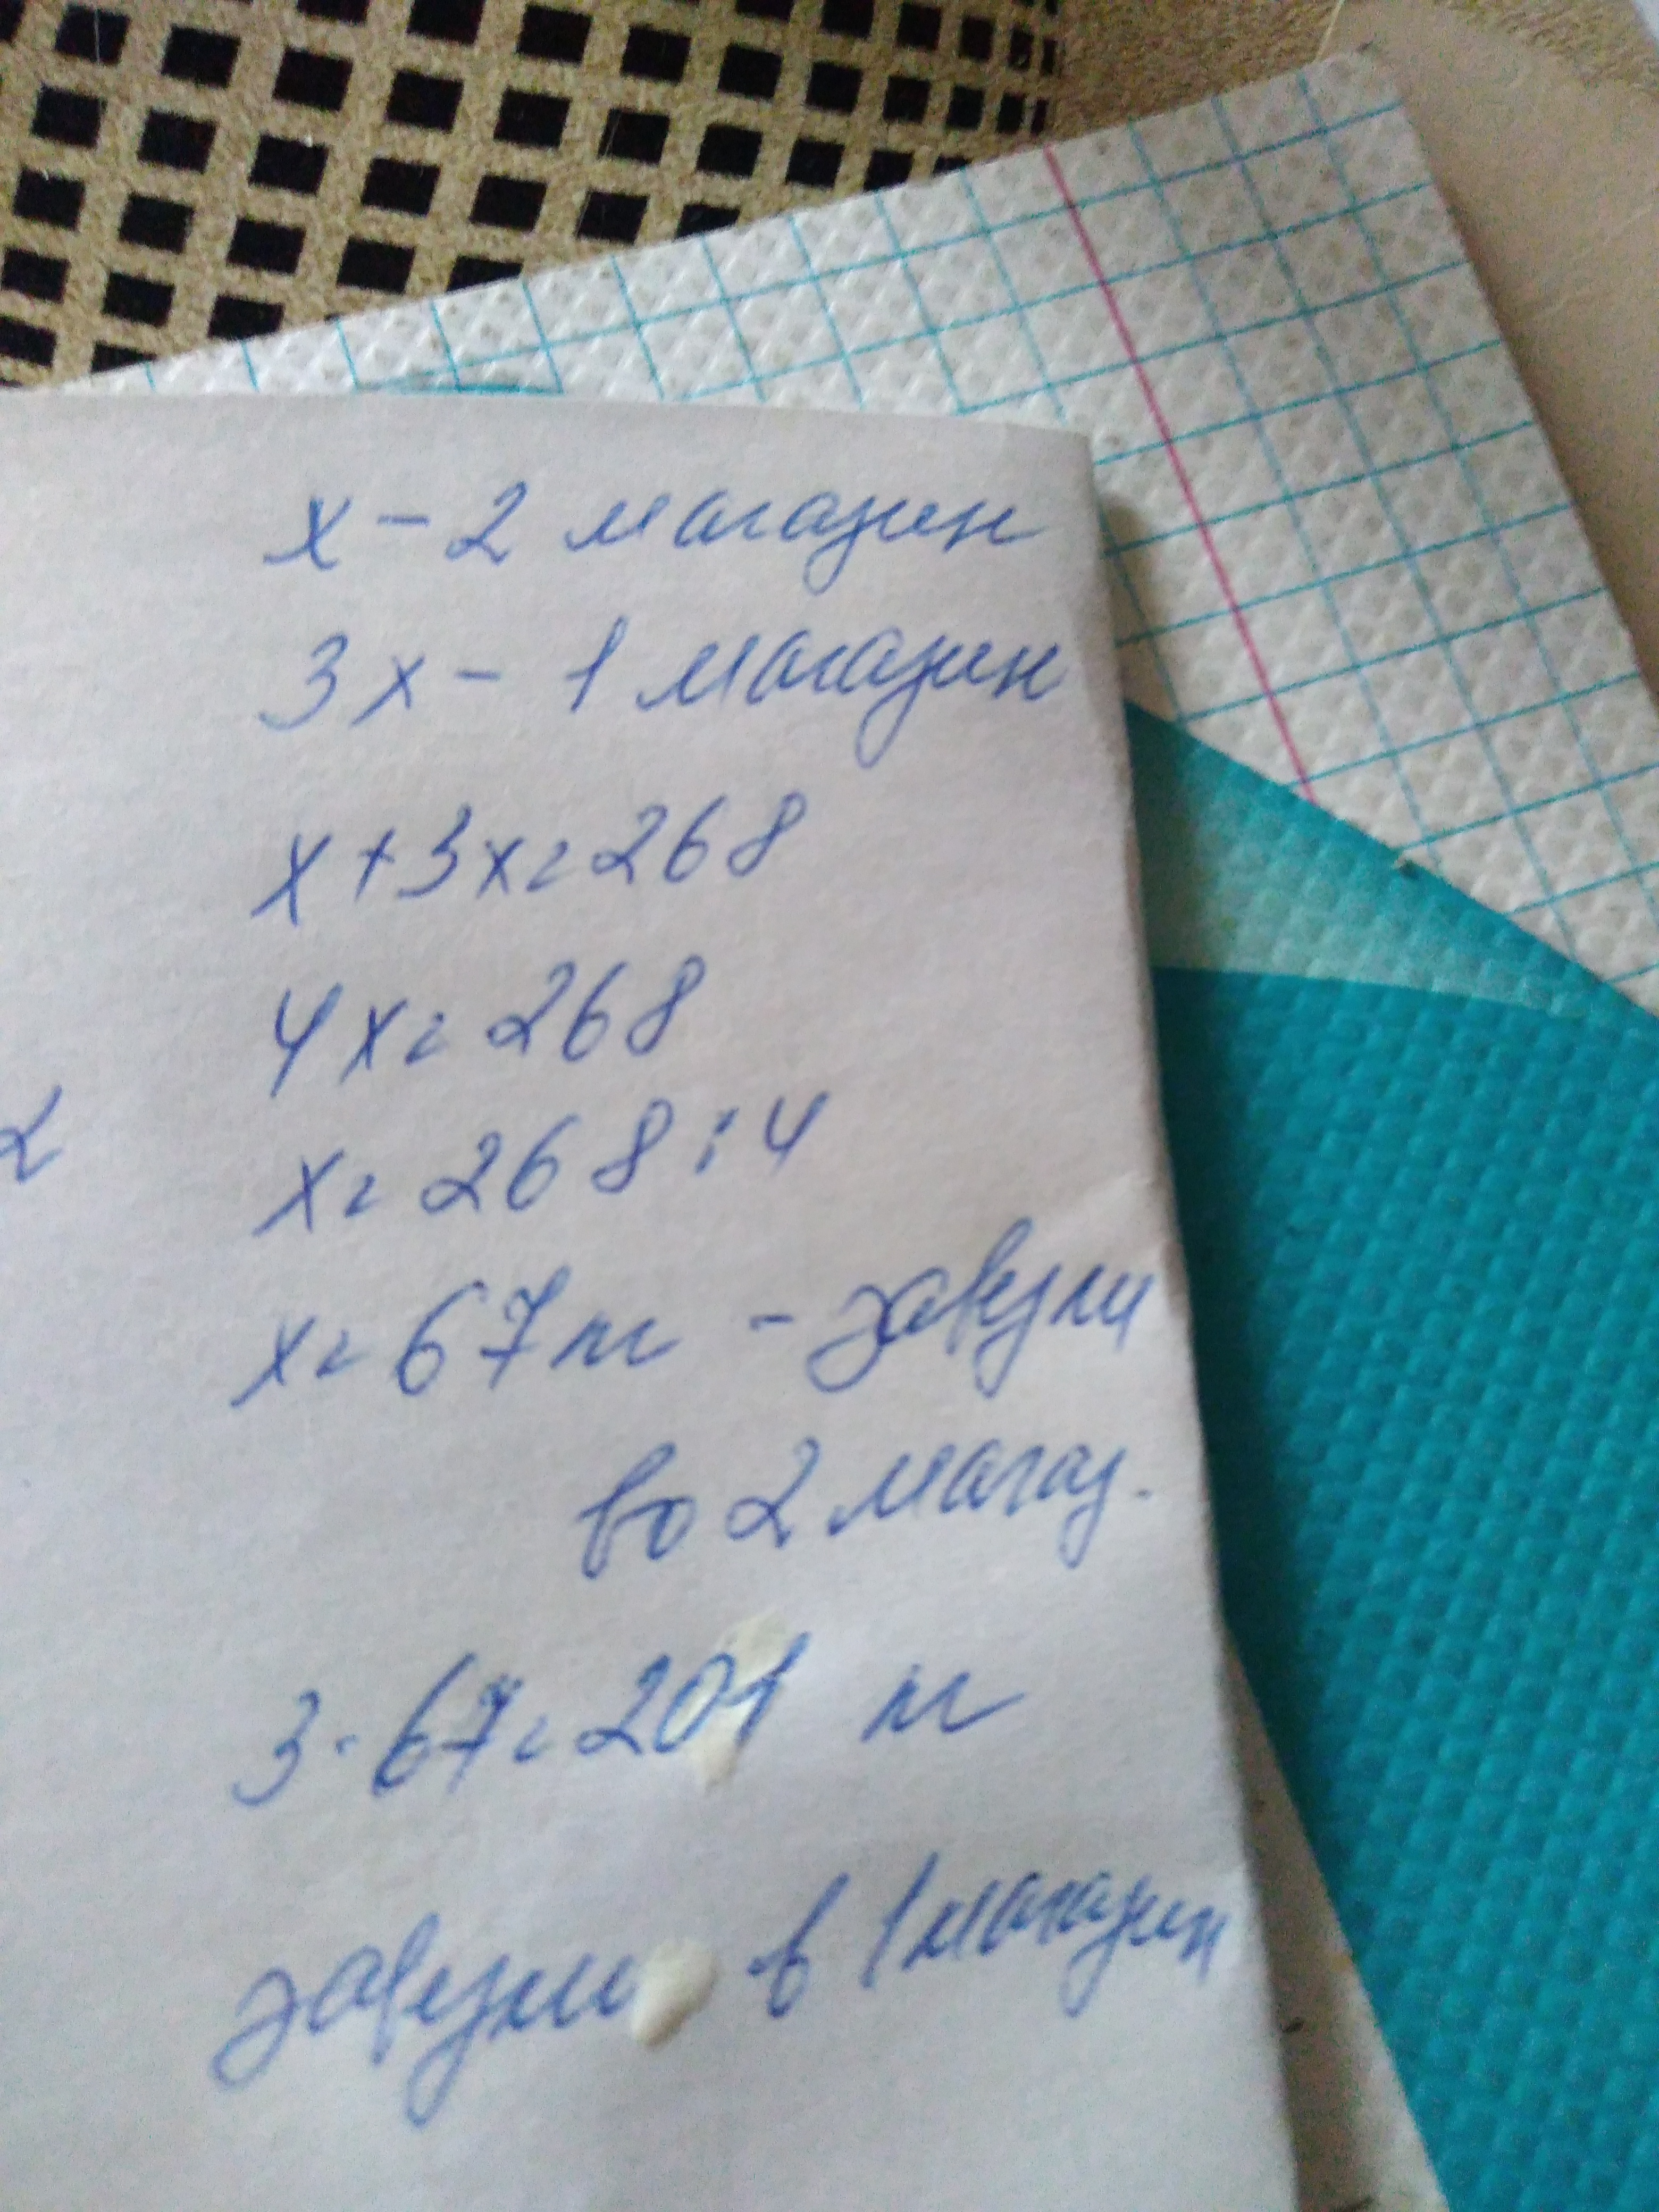 x - 2 магазин
3x - 1 магазин
x+3x=268
4x=268
2
x=268:4
x=67 кг - завезли
во 2 магаз.
3·67=201 кг
завезли в 1 магазин